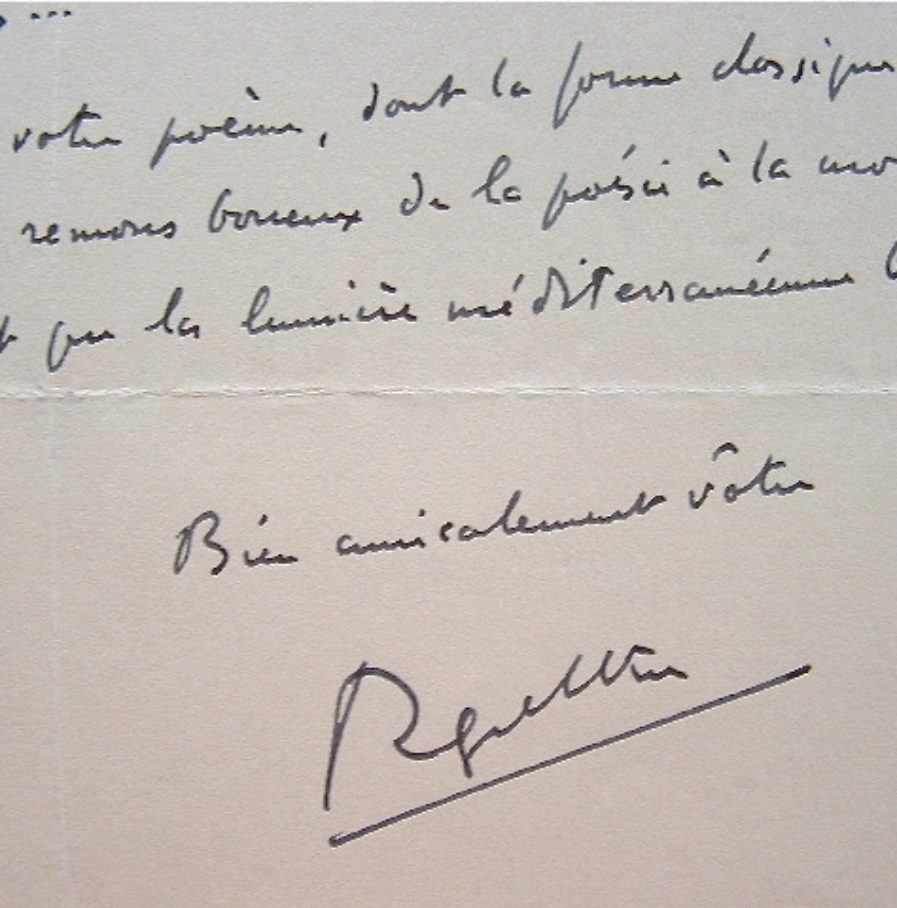 ...
votre poème, dont la forme classique
remous boueux de la poésie à la mo
que la lumière méditerranéenne
Bien amicalement vôtre